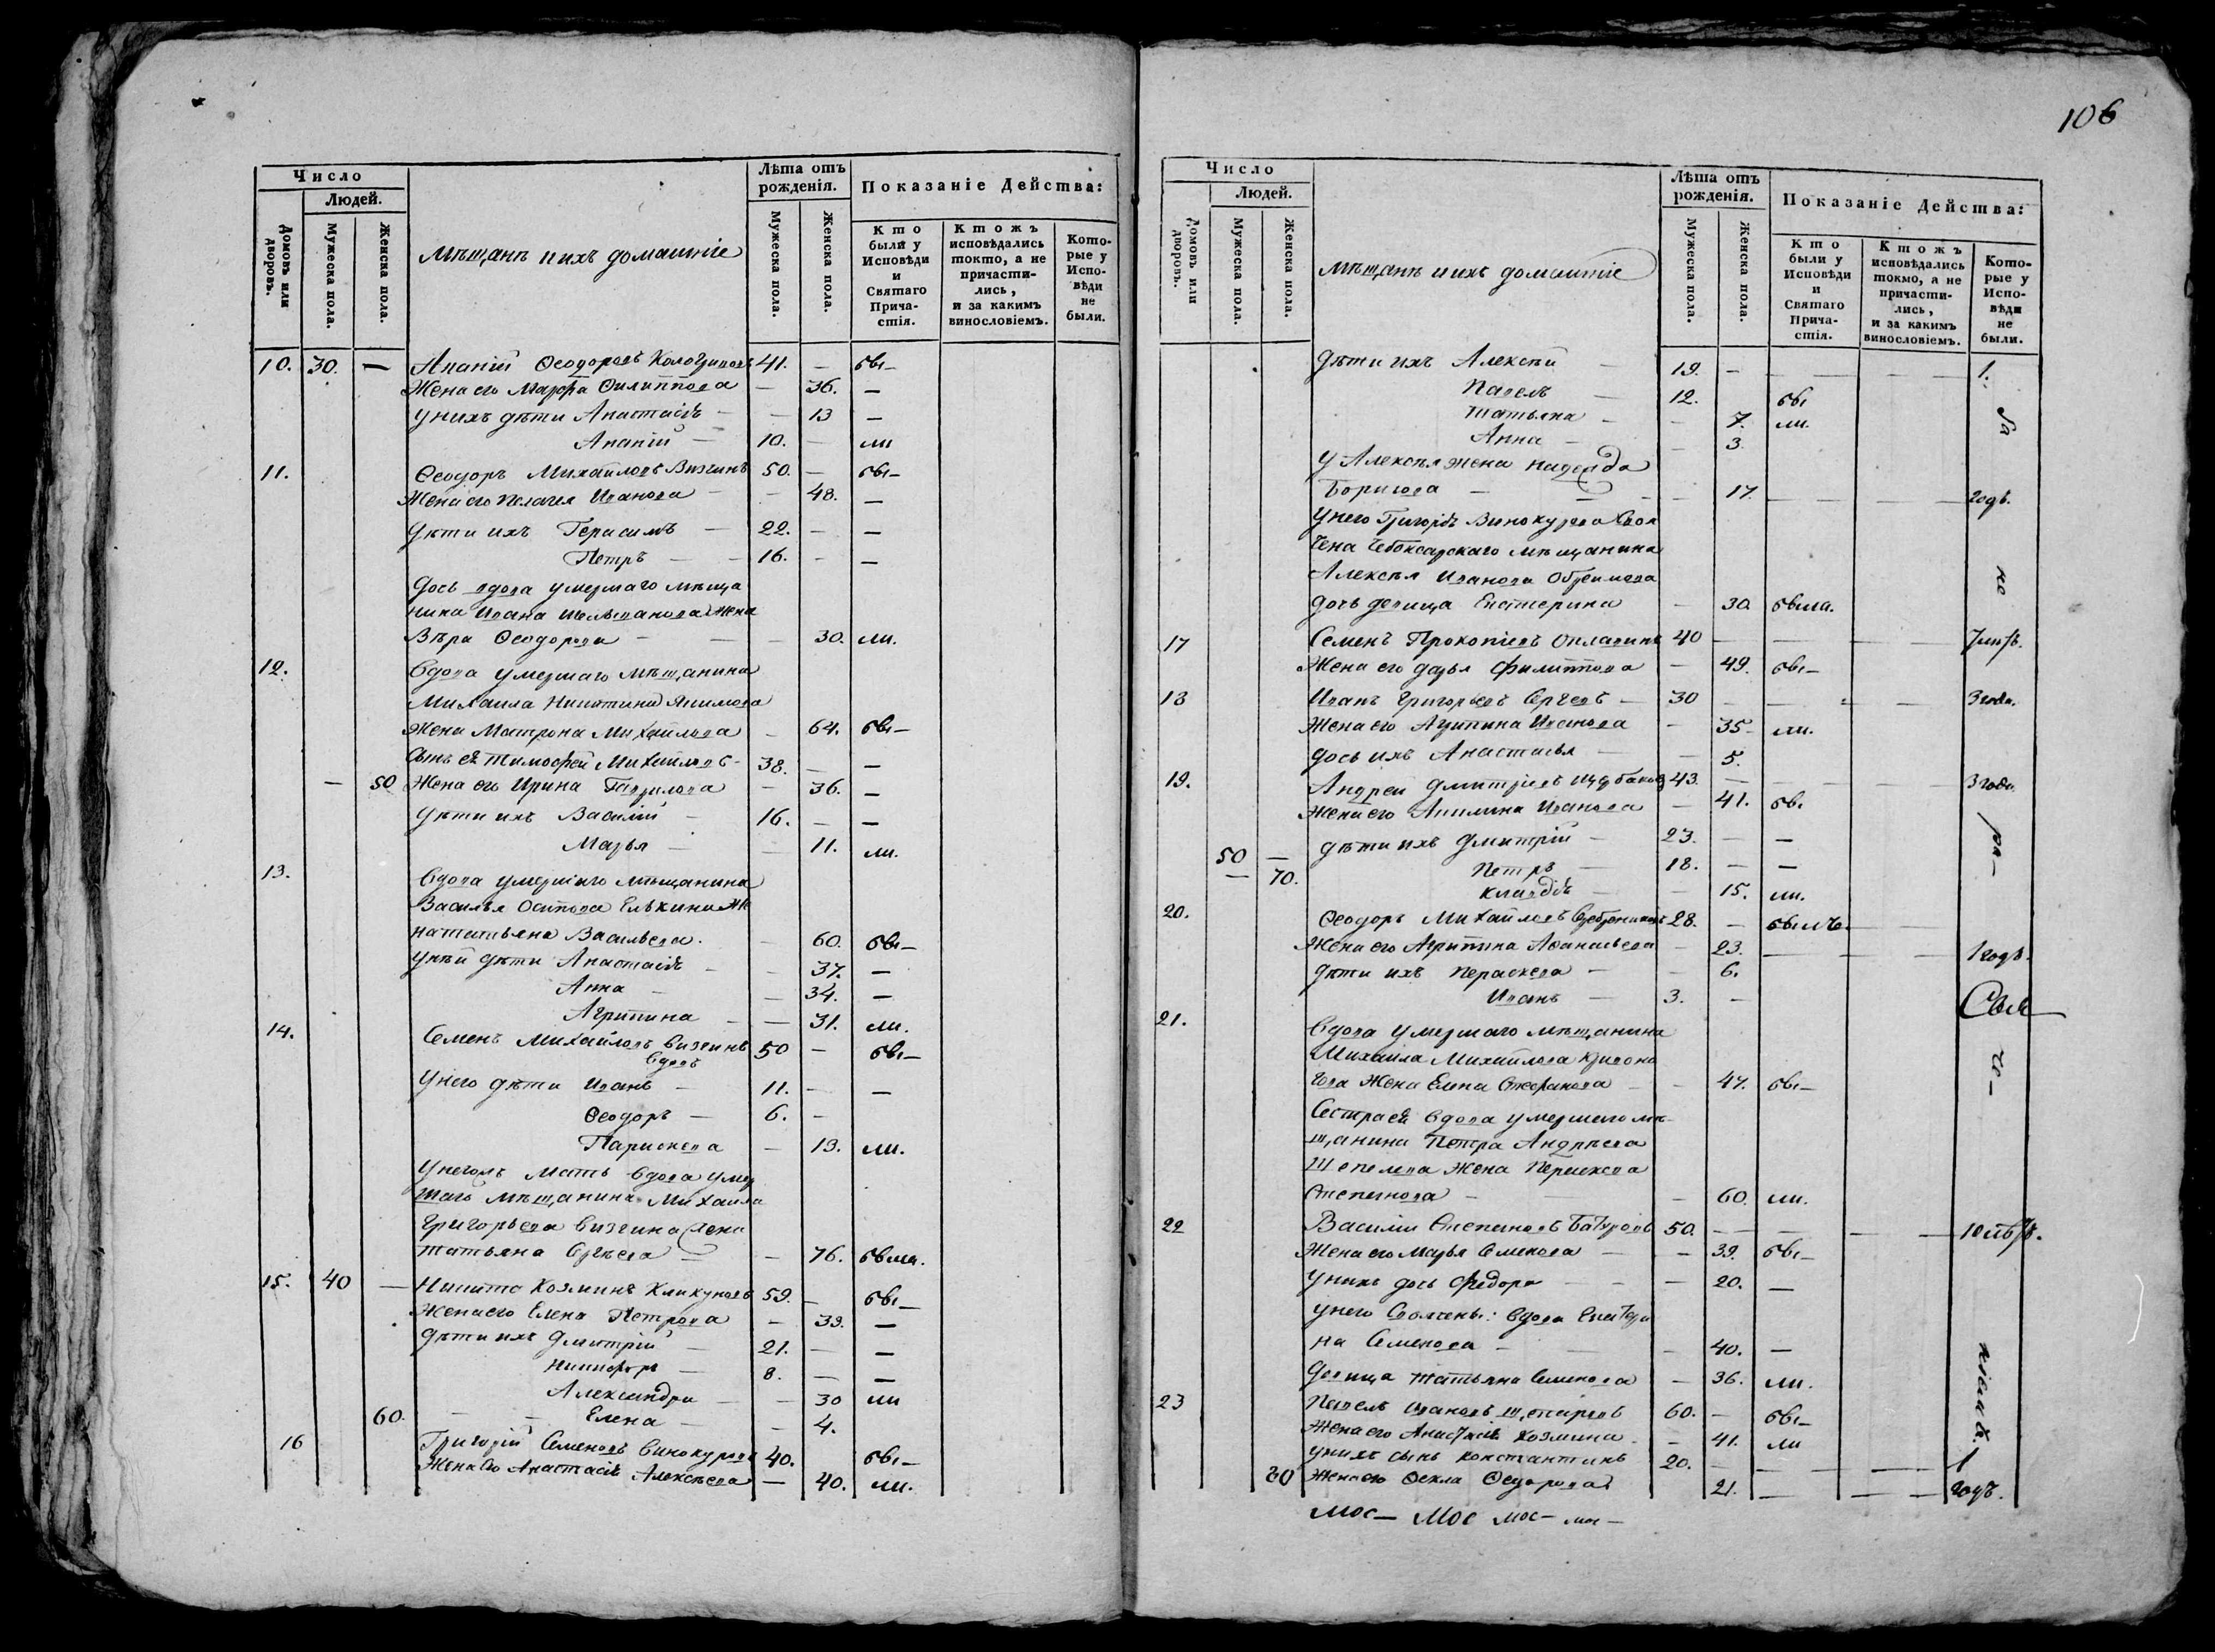 Число
Людей.
Домовъ или дворовъ.
Мужеска пола.
Женска пола.
Мѣщанъ и ихъ домашніе
Лѣта отъ рожденія.
Мужеска пола.
Женска пола.
Показаніе Действа:
Кто были у Исповѣди и Святаго Причастія.
Ктожъ исповѣдались токто, а не причастились, и за какимъ винословіемъ.
Которые у Исповѣди не были.
10. 30. — Ананій Ѳеодоровъ 41. — бы—
Жена его Марѳа Филиппова — 36. —
У нихъ дѣти Анастасія — — 13 —
Ананій — 10. — ли
11. Ѳеодоръ Михайловъ Визгинъ 50. — бы—
Жена его Пелагея Иванова — — 48. —
Дѣти ихъ Герасимъ — 22. — —
Петръ — — 16. — —
Дочь вдова умершаго мѣща
нина Ивана жена
Вѣра Ѳеодорова — — — 30. ли.
12. Вдова умершаго мѣщанина
Михаила Никитина Якимова
Жена Матрона Михайлова — 64. бы—
Сынъ ея Тимоѳей Михайловъ - 38. — —
— 50 Жена его Ирина Гаврилова — 36. —
Дѣти ихъ Василій — 16. — —
Марья — — 11. ли.
13. Вдова умершаго мѣщанина
Василья Осипова Елькина же
на Татьяна Васильева. — 60. бы—
У ней дѣти Анастасія — — 37. —
Анна — — 34. —
Агрипина — — 31. ли.
14. Семенъ Михайловъ Визгинъ 50 — бы—
Вдовъ
У него дѣти Иванъ — 11. — —
Ѳеодоръ — 6. —
Парискева — 13. ли.
У негожъ мать вдова умер
шаго мѣщанина Михаила
Григорьева Визгина жена
Татьяна Сергѣева — — 76. была.
15. 40 — Никита Козминъ Кликуновъ 59. — бы—
Жена его Елена Петрова — 39. —
Дѣти ихъ Дмитрій — 21. — —
Никифоръ — 8. — —
Александра — — 30 ли
60. — — Елена — — 4.
16 Григорій Семеновъ Винокуровъ 40. бы—
Жена его Анастасія Алексѣева — 40. ли.
106
Число
Людей.
Домовъ или дворовъ.
Мужеска пола.
Женска пола.
Мѣщанъ и ихъ домашніе
Лѣта отъ рожденія.
Мужеска пола.
Женска пола.
Показаніе Действа:
Кто были у Исповѣди и Святаго Причастія.
Ктожъ исповѣдались токмо, а не причастились, и за какимъ винословіемъ.
Которые у Исповѣди не были.
Дѣти ихъ Алексѣй — 19. — — — — 1.
Павелъ — 12. бы
Татьяна — — 7. ли.
Анна — — 3.
У Алексѣя жена Надежда
Борисова — — — — 17. — — — годъ.
У него Григорія Винокурова своя
чена Чебоксарскаго мѣщанина
Алексѣя Иванова
дочь девица Екатерина — 30. была.
17 Семенъ Прокопіевъ 40 — — — —
Жена его Дарья Филиппова — 49. бы—
18 Иванъ Григорьевъ — 30 — — — — 3 года.
Жена его Агрипина Иванова — 35 — ли.
дочь ихъ Анастасья — — 5.
19. Андрей Дмитріевъ 43. — — — — 3 года.
Жена его Акилина Иванова — 41. бы
дѣти ихъ Дмитрій — 23. — —
50 — Петръ — 18. — —
— 70. Клавдія — — 15. ли.
20. Ѳеодоръ Михайловъ Серебрениковъ 28. — былъ. — —
Жена его Агрипина Аѳанасьева — 23. — — — 1 годъ.
Дѣти ихъ Пераскева — — 6.
Иванъ — 3. —
21. Вдова умершаго мѣщанина
Михаила Михайлова Кривоно
гова жена Елена Стефанова — — 47. бы—
Сестра ея вдова умершаго мѣ
щанина Петра Андрѣева
Шепелева жена Пераскева
Степанова — — 60. ли.
22 Василій Степановъ Батуровъ 50. — — — —
Жена его Марья Семенова — — 39. бы—
У нихъ дочь Федора — — — 20. —
У него своячены: вдова Екатери
на Семенова — — 40. —
Девица Татьяна Семенова — 36. ли.
23 Павелъ Ивановъ 60. — бы—
Жена его Анастасія Козмина — — 41. ли
У нихъ сынъ Константинъ 20. — — — — 1
80 Жена его Ѳекла Ѳеодорова 21. — — — годъ.
мос— мос мос— мос—